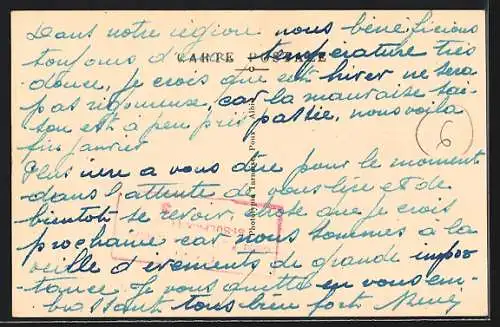 Dans notre région nous bénéficions
toujours d'une température très
CARTE POSTALE
douce, je crois que cet hiver ne sera
pas rigoureux, car la mauvaise sai-
son est à peu près passée, nous voilà
fin janvier
Plus rien a vous dire pour le moment
dans l'attente de vous lire et de
bientôt se revoir, chose que je crois
prochaine car nous sommes à la
veille d'évenements de grande impor
tance Je vous quitte en vous em-
brassant tous bien fort
6